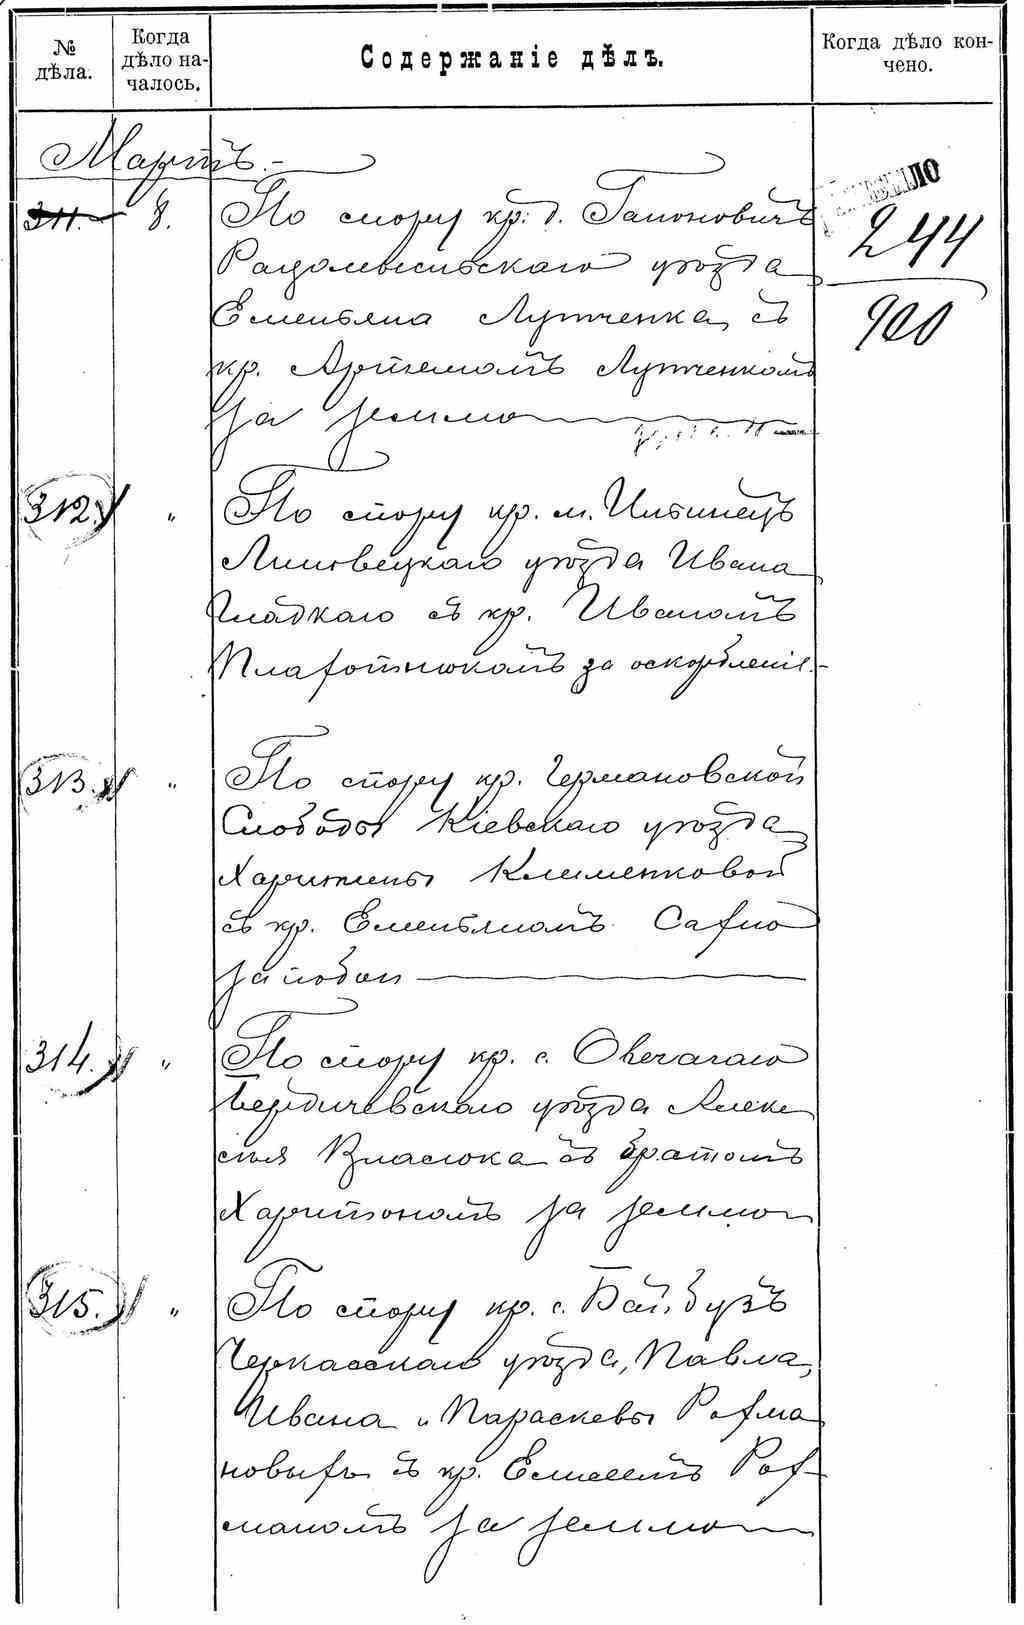 № дѣла.
Когда дѣло началось.
Содержаніе дѣлъ.
Когда дѣло кончено.
Мартъ.
311. 8. По спору кр. д. Гапоновичъ
Радомысльскаго уѣзда
Емельяна Лутченка съ
кр. Артемомъ Лутченкомъ
за землю
244
900
312. " По спору кр. м. Ильинецъ
Липовецкаго уѣзда Ивана
Гладкаго съ кр. Иваномъ
за оскорбленіе.
313. " По спору кр. Германовской
Слободы Кіевскаго уѣзда
Харитины Клименковой
съ кр. Емельяномъ
за побои
314. " По спору кр. с. Овечачаго
Бердичевскаго уѣзда Алек
сѣя Власюка съ братомъ
Харитономъ за землю
315. " По спору кр. с. Байбузъ
Черкасскаго уѣзда, Павла,
Ивана и Параскевы Рохма
новыхъ съ кр. Елисеемъ Рох-
маномъ за землю